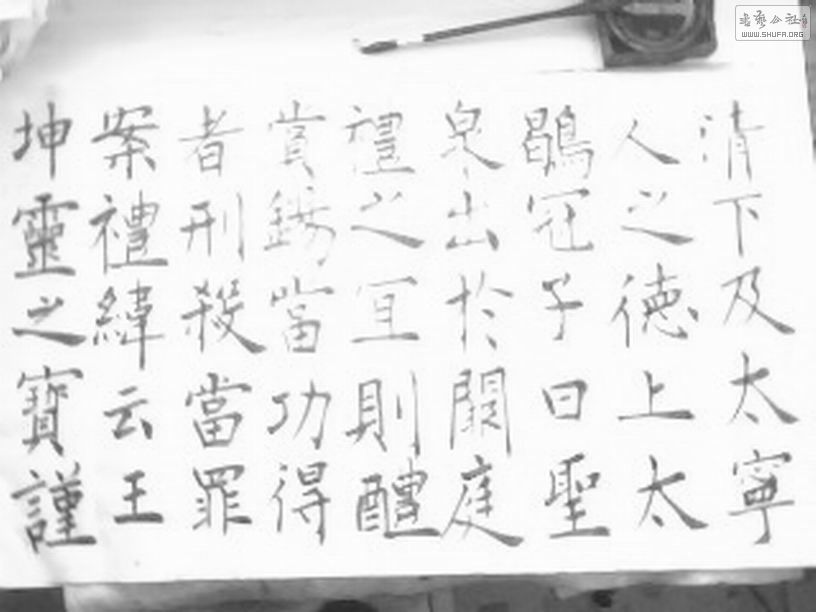 坤靈之寶謹
案禮緯云王
者刑殺當罪
賞錫當功得
禮之宜則醴
泉出於闕庭
鶡冠子曰聖
人之德上太
清下及太寧
书艺公社
WWW.SHUFA.ORG